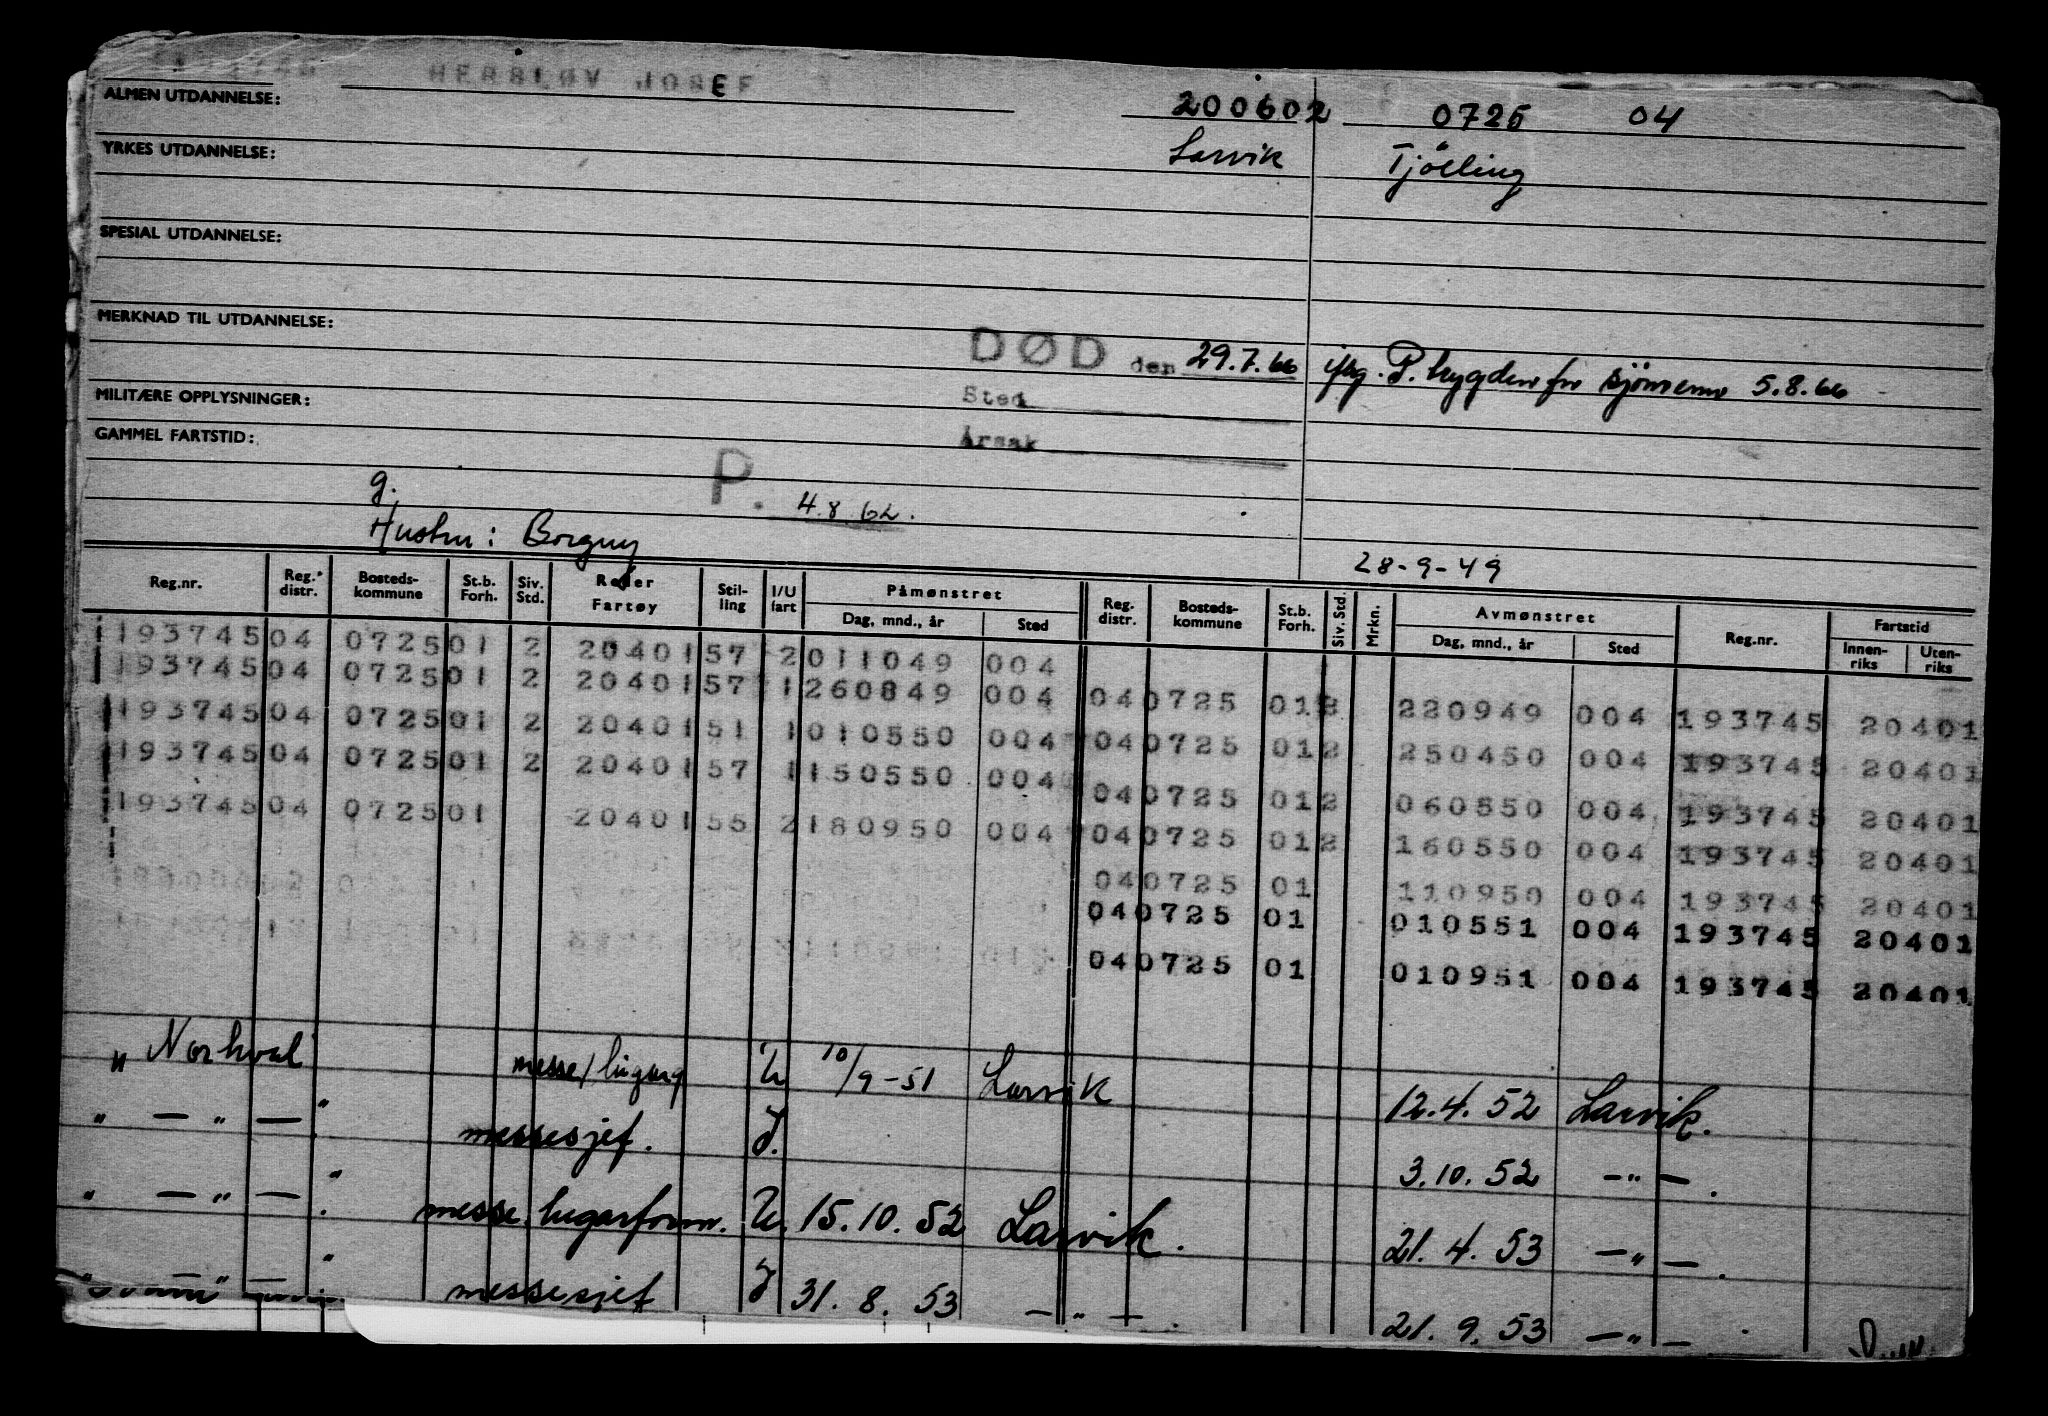 HERSLØV JOSEF
ALMEN UTDANNELSE: 200602 0725 04
YRKES UTDANNELSE: Larvik Tjölling
SPESIAL UTDANNELSE:
MERKNAD TIL UTDANNELSE:
DØD den 29.7.66 iflg. P. trygden for sjömenn 5.8.66
MILITÆRE OPPLYSNINGER: Sted
GAMMEL FARTSTID: Årsak
g. P. 4.8.62.
Hustru: Borgny
28-9-49
Reg.nr. Reg. distr. Bosteds-kommune St.b. Forh. Siv. Std. Reder Fartøy Stil-ling I/U fart Påmønstret Dag, mnd., år Sted Reg. distr. Bosteds-kommune St.b. Forh. Siv. Std. Mrkn. Avmønstret Dag, mnd., år Sted Reg.nr. Fartstid Innen-riks Uten-riks
193745 04 0725 01 2 20401 57 2 011049 004
193745 04 0725 01 2 20401 57 1 260849 004
040725 01 220949 004 193745 20401
193745 04 0725 01 2 20401 51 1 010550 004
040725 01 2 250450 004 193745 20401
193745 04 0725 01 2 20401 57 1 150550 004
040725 01 2 060550 004 193745 20401
193745 04 0725 01 20401 55 2 180950 004
040725 01 2 160550 004 193745 20401
040725 01 110950 004 193745 20401
040725 01 010551 004 193745 20401
040725 01 010951 004 193745 20401
"Norhval" messe/lugarg U 10/9-51 Larvik 12.4.52 Larvik.
" — " — " messesjef. I. 3.10.52 — " — .
" — " — " messe. lugarform. U. 15.10.52 Larvik. 21.4.53 — " — .
" — " — " messesjef I 31.8.53 — " — . 21.9.53 — " —